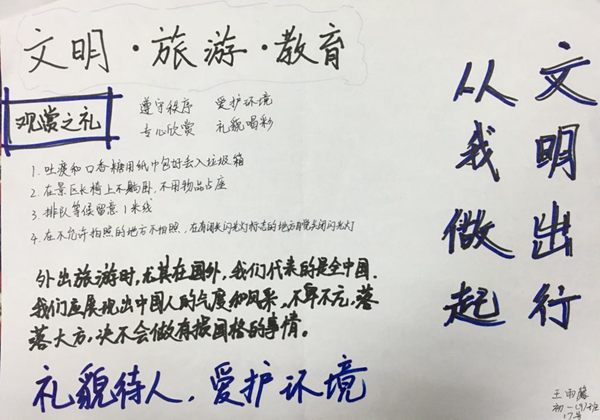 文明·旅游·教育
观赏之礼
遵守秩序 爱护环境
专心欣赏 礼貌喝彩
1.吐痰和口香糖用纸巾包好丢入垃圾箱
2.在景区长椅上不躺卧,不用物品占座
3.排队等候留意1米线
4.在不允许拍照的地方不拍照,在有闭关闪光灯标志的地方自觉关闭闪光灯
外出旅游时,尤其在国外,我们代表的是全中国.
我们应展现出中国人的气度和风采,不卑不亢,落
落大方,决不会做有损国格的事情。
礼貌待人,爱护环境
文明出行
从我做起
王
初一(9)班
17号